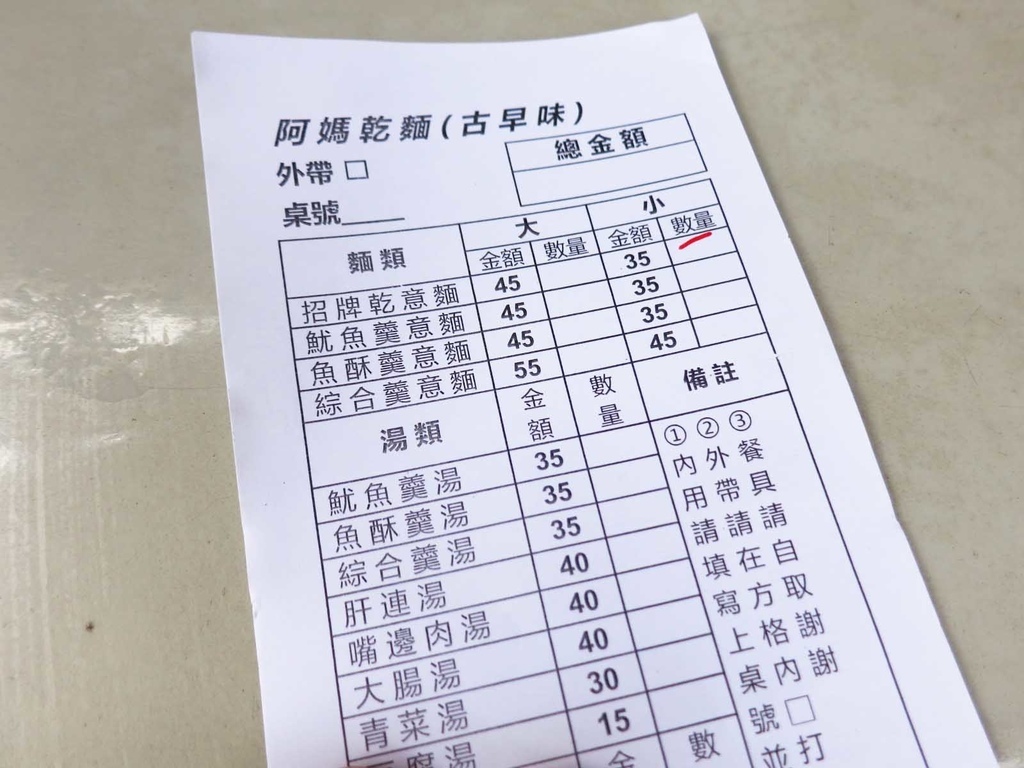 阿媽乾麵(古早味)
外帶 □
總金額
桌號____
麵類 大 小
金額 數量 金額 數量
招牌乾意麵 45 35
魷魚羹意麵 45 35
魚酥羹意麵 45 35
綜合羹意麵 55 45
湯類 金額 數量 備註
魷魚羹湯 35
魚酥羹湯 35
綜合羹湯 35
肝連湯 40
嘴邊肉湯 40
大腸湯 40
青菜湯 30
腐湯 15
金 數
①內用請填寫上桌號並
②外帶請在方格內□打
③餐具請自取謝謝